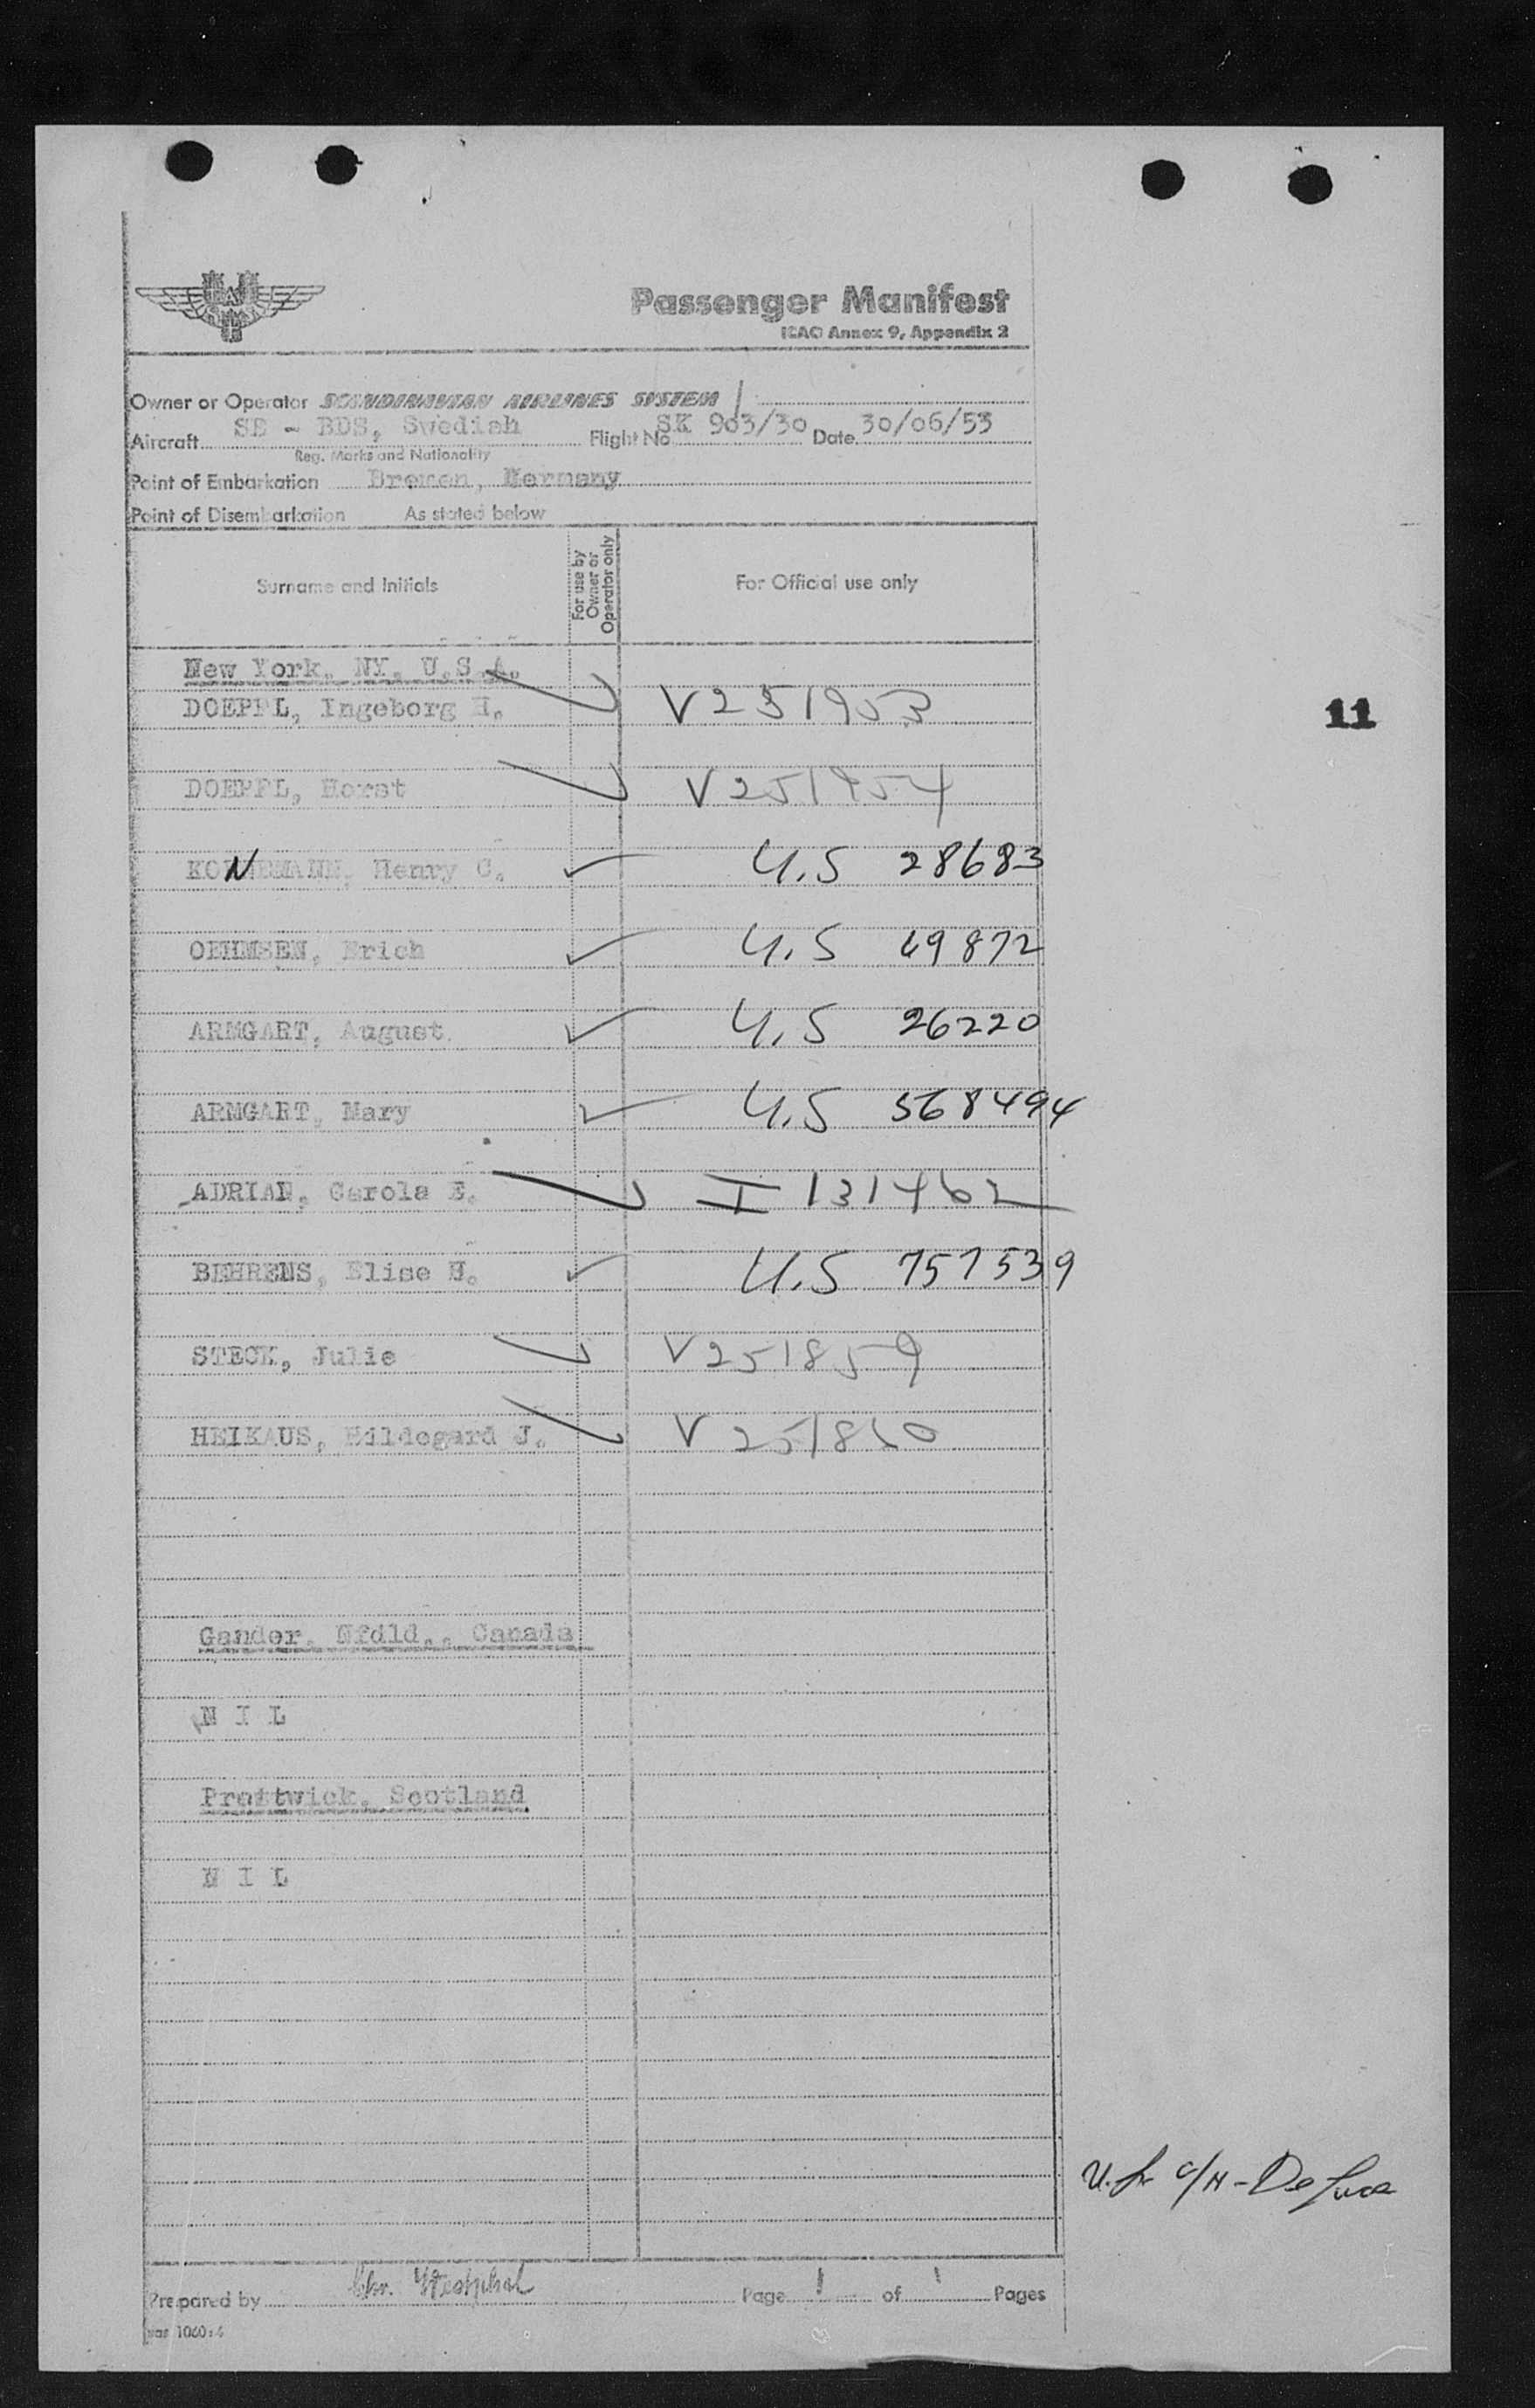 Passenger Manifest
ICAO Annex 9, Appendix 2
Owner or Operator SCANDINAVIAN AIRLINES SYSTEM
Aircraft SE - BDS, Swedish Flight No. SK 903/30 Date 30/06/53
Reg. Marks and Nationality
Point of Embarkation Bremen, Germany
Point of Disembarkation As stated below
Surname and Initials For use by Owner or Operator only For Official use only
New York, NY, U.S.A.
DOEPPL, Ingeborg H. V251953
11
DOEPPL, Horst V251954
KONNEMANN, Henry C. U.S 28683
OEHMSEN, Erich U.S 69872
ARMGART, August U.S 26220
ARMGART, Mary U.S 568494
ADRIAN, Carola E. I 131462
BEHRENS, Elise H. U.S 757539
STECK, Julie V251859
HEIKAUS, Hildegard J. V 251860
Gander, Nfdld., Canada
N I L
Prestwick, Scotland
N I L
De Luca
Prepared by Chr. Westphal Page 1 of 1 Pages